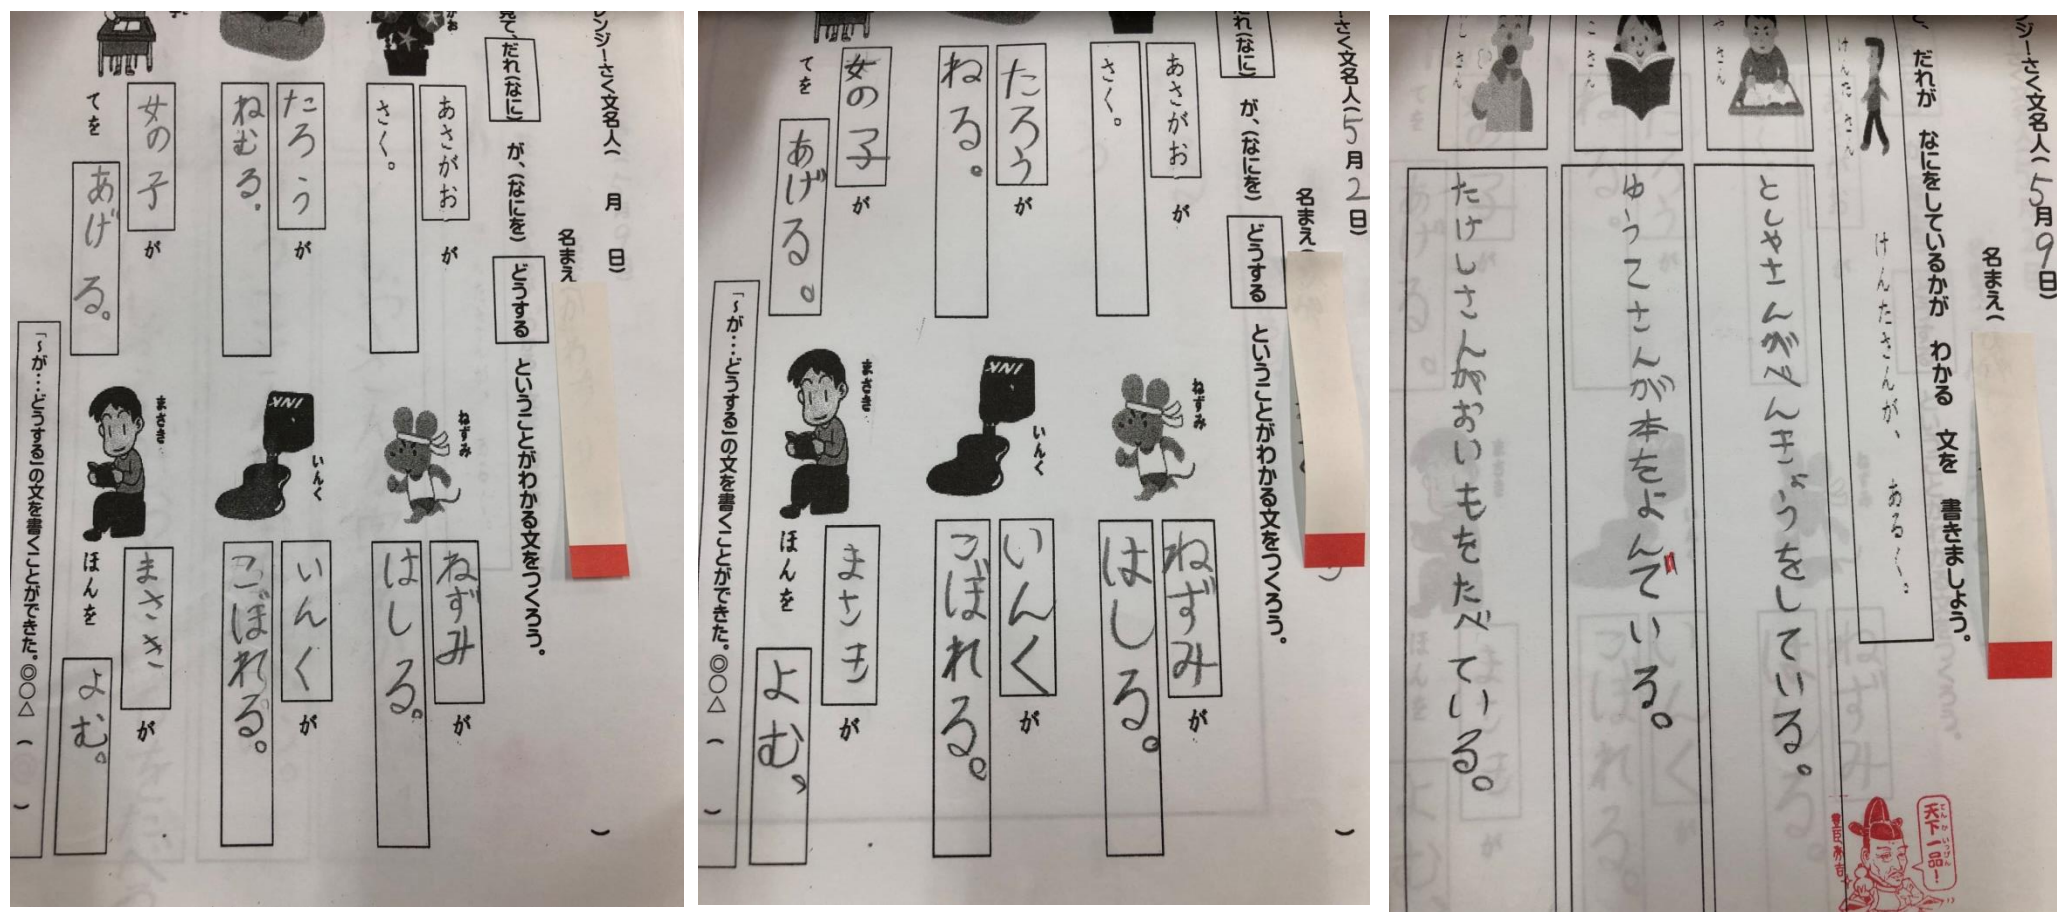 レンジーさく文名人( 月 日)
名まえ(
見て、だれ(なに)が、(なにを)どうするということがわかる文をつくろう。
あさがおが
さく。
たろうが
ねむる。
女の子が
てをあげる。
ねずみ
ねずみが
はしる。
INK
いんく
いんくが
こぼれる。
まさき
まさきが
ほんをよむ。
「～が…どうする」の文を書くことができた。◎○△( )
ーさく文名人(5月2日)
名まえ(
だれ(なに)が、(なにを)どうするということがわかる文をつくろう。
あさがおが
さく。
たろうが
ねる。
女の子が
てをあげる。
ねずみ
ねずみが
はしる。
INK
いんく
いんくが
こぼれる。
まさき
まさきが
ほんをよむ、
「～が…どうする」の文を書くことができた。◎○△( )
ンジーさく文名人(5月9日)
名まえ(
て、だれが なにをしているかが わかる 文を 書きましょう。
けんたさん
けんたさんが、 あるく。
やさん
としやさんがべんきょうをしている。
こさん
ゆうこさんが本をよんでいる。
しさん
たけしさんがおいもをたべている。
天下一品!
豊臣秀吉